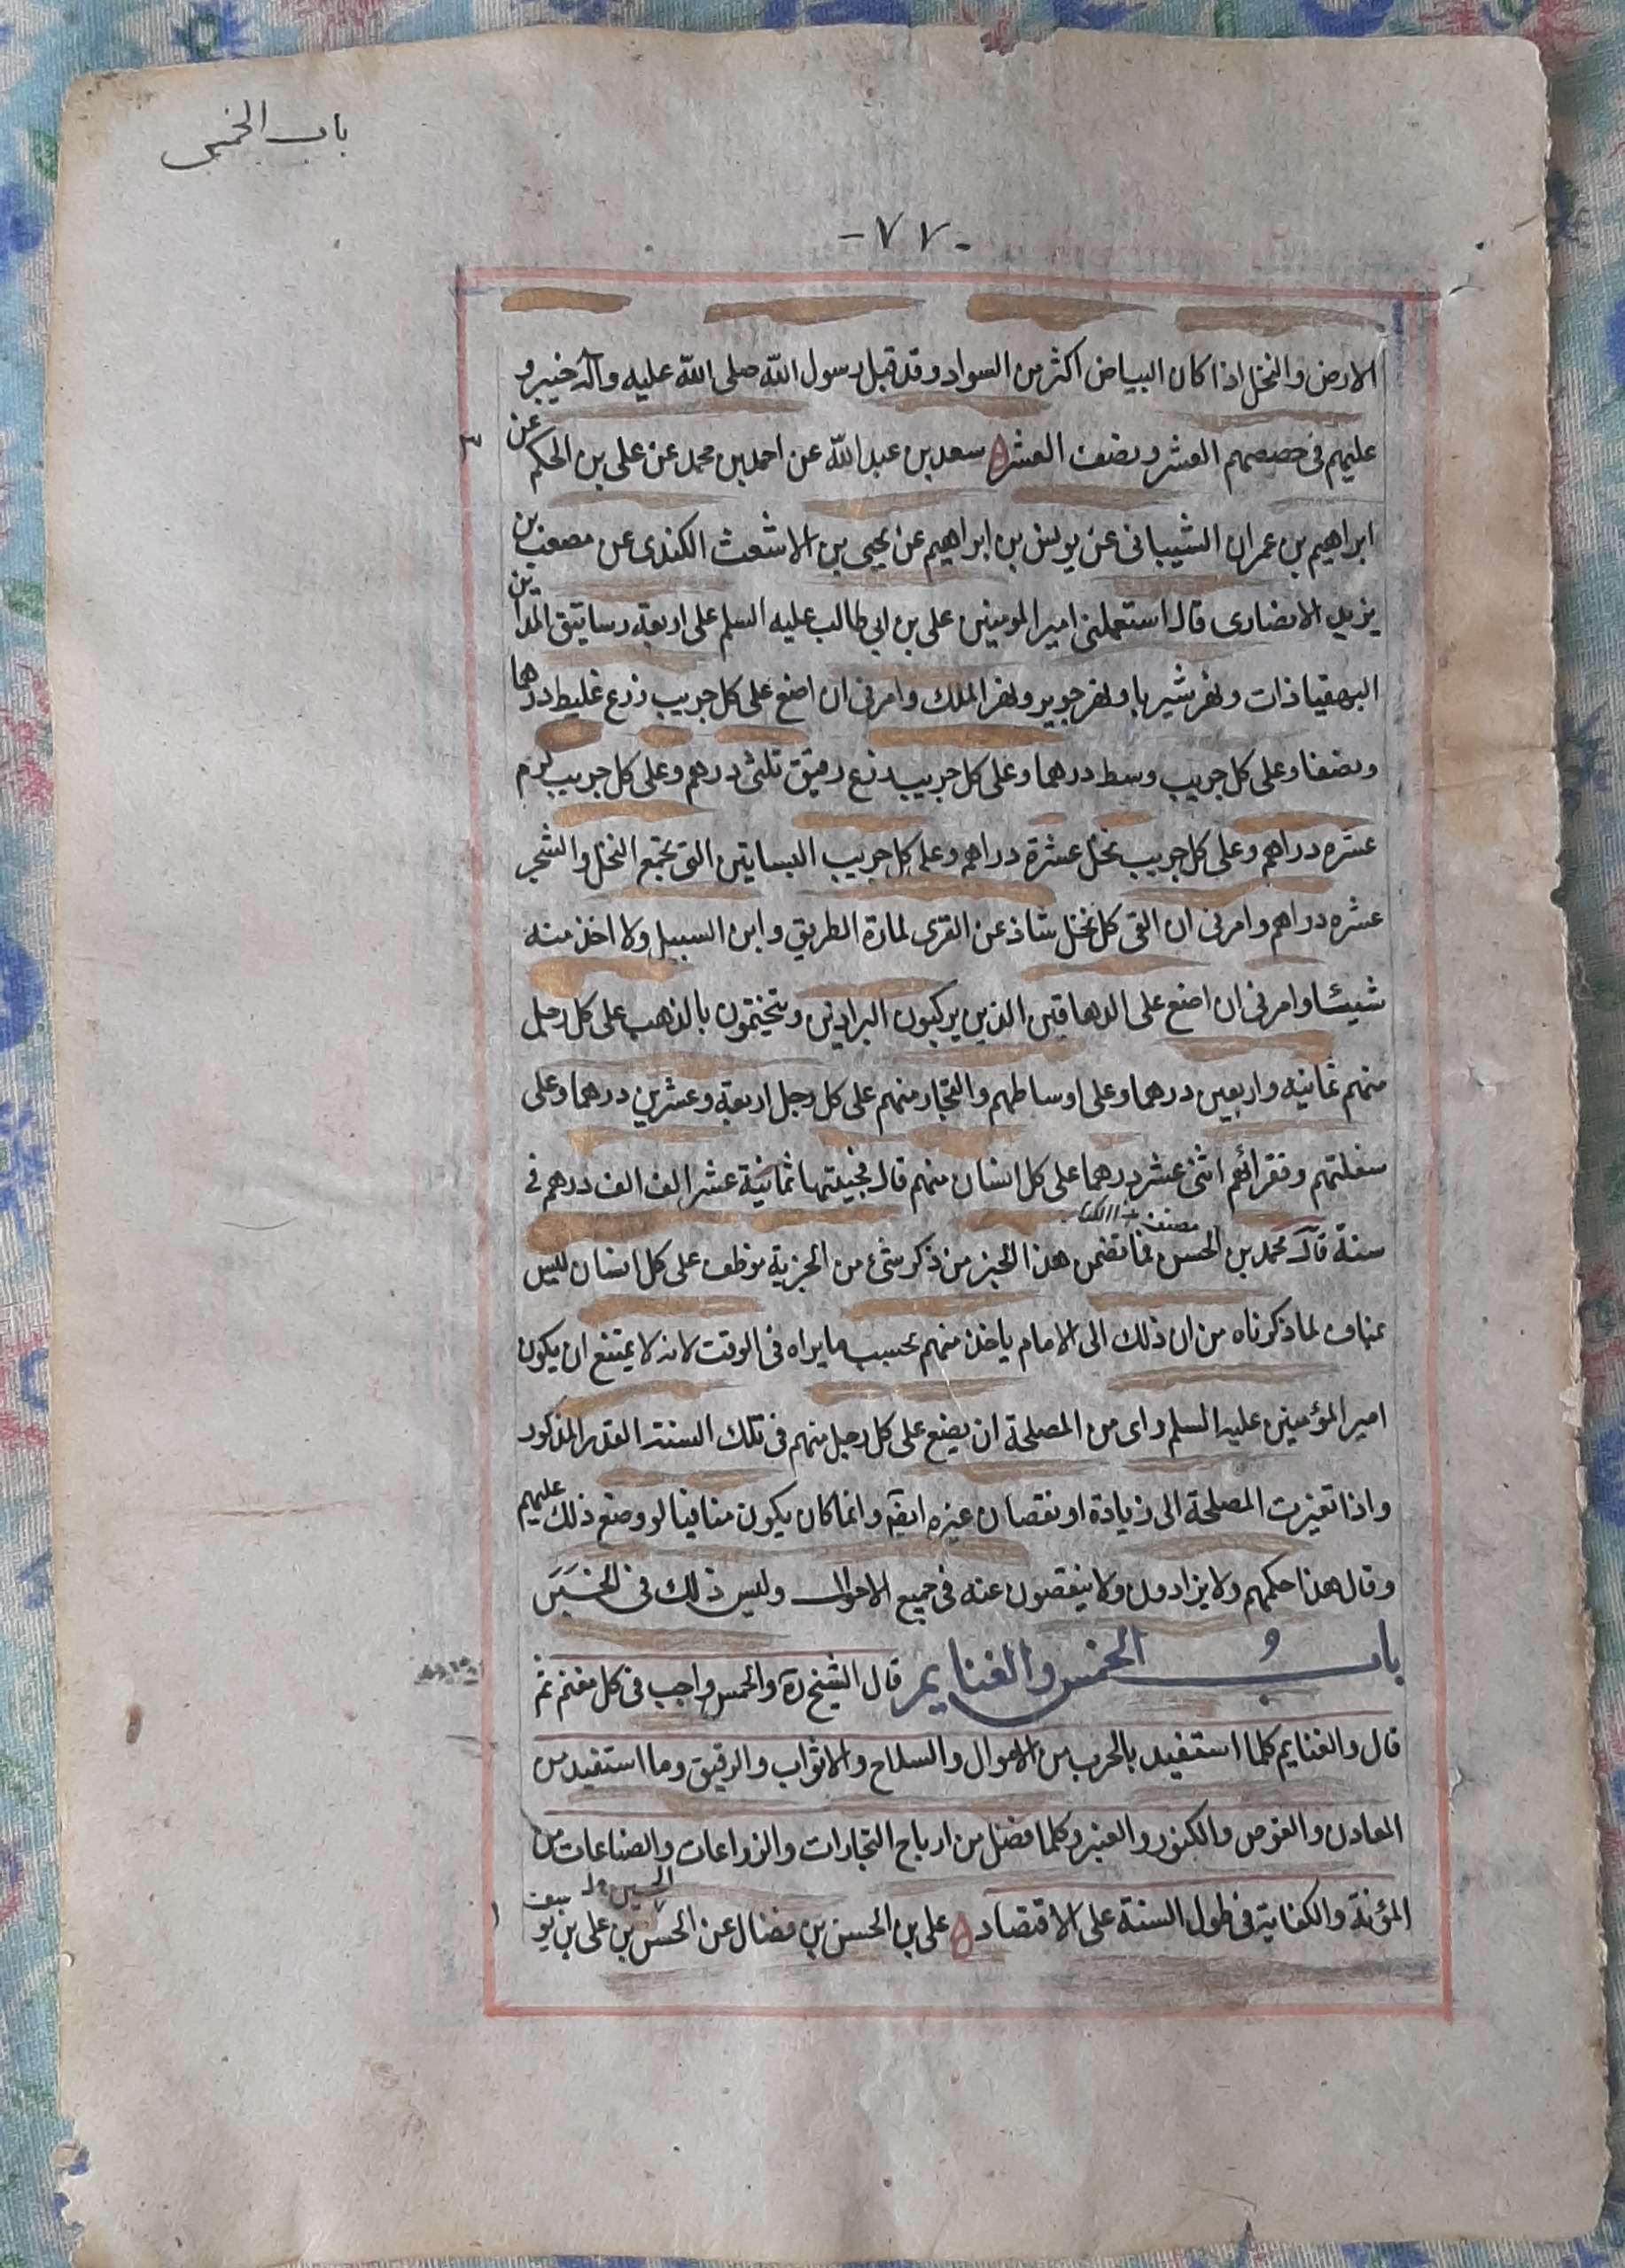 باب الخمس
- ٧٧ -
الارض والنخل اذا كان البياض اكثر من السواد وقد قبل رسول الله صلى الله عليه وآله خيبر و
عليهم فى حصصهم العشر ونصف العشر ه سعد بن عبد الله عن احمد بن محمد عن على بن الحكم عن
٣
ابراهيم بن عمران الشيبانى عن يونس بن ابراهيم عن يحيى بن الاشعث الكندى عن مصعب بن
يزيد الانصارى قال استعملنى امير المومنين على بن ابى طالب عليه السلم على اربعة رساتيق المداين
البهقياذات ونهر شيريا ونهر جوير ونهر الملك وامرنى ان اضع على كل جريب زرع غليط درهما
ونصفا وعلى كل جريب وسط درهما وعلى كل جريب زرع رقيق ثلثى درهم وعلى كل جريب كرم
عشره دراهم وعلى كل جريب نخل عشرة دراهم وعلى كل جريب البساتين التى تجمع النخل والشجر
عشره دراهم وامرنى ان القى كل نخل شاذ عن القرى لمارة الطريق وابن السبيل ولا اخذ منه
شيئا وامرنى ان اضع على الدهاقين الذين يركبون البراذين ويتختمون بالذهب على كل رجل
منهم ثمانيه واربعين درهما وعلى اوساطهم والتجار منهم على كل رجل اربعة وعشرين درهما وعلى
سفلتهم وفقرائهم اثنى عشر درهما على كل انسان منهم قال فجبيتها ثمانية عشر الف الف درهم فى
مصنف الكتاب
سنة قال محمد بن الحسن فما تضمن هذا الخبر من ذكر شئ من الجزية موظف على كل انسان ليس
بمناف لما ذكرناه من ان ذلك الى الامام ياخذ منهم بحسب ما يراه فى الوقت لانه لا يمتنع ان يكون
امير المؤمنين عليه السلم راى من المصلحة ان يضع على كل رجل منهم فى تلك السنة القدر المذكور
واذا تغيرت المصلحة الى زيادة او نقصان غيره ايضا وانما كان يكون منافيا لو وضع ذلك عليهم
وقال هذا حكمهم ولا يزادون ولا ينقصون عنه فى جميع الاحوال وليس ذلك فى الخبر
بابُ الخمس والغنايم قال الشيخ ره والخمس واجب فى كل مغنم ثم
قال والغنايم كلما استفيد بالحرب من الاموال والسلاح والاثواب والرقيق وما استفيد من
المعادن والغوص والكنوز والعنبر وكلما فضل من ارباح التجارات والزراعات والصناعات من
المؤنة والكفاية فى طول السنة على الاقتصاد ه على بن الحسن بن فضال عن الحسن بن على بن يوسف
١